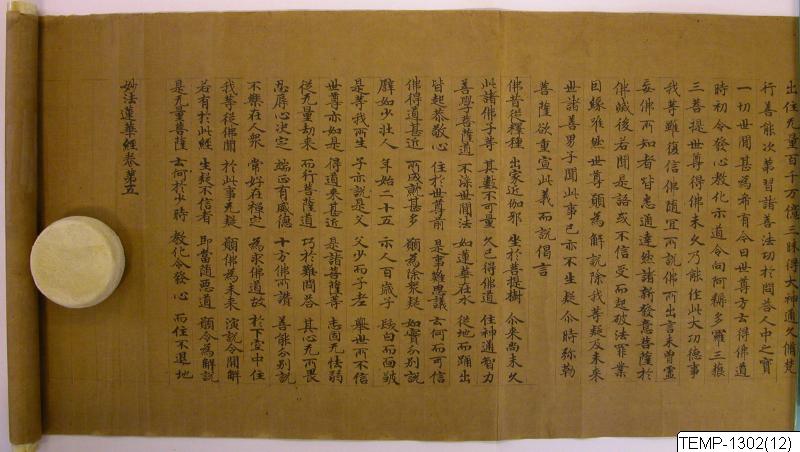 出住无量百千万億三昧得大神通久脩梵
行善能次第習諸善法功於問荅人中之寶
一切世間甚為希有今日世尊方云得佛道
時初令發心教化示道令向阿耨多羅三藐
三菩提世尊得佛未久乃能作此大功德事
我等雖復信佛随宜所說佛所出言未曾虛
妄佛所知者皆悉通達然諸新發意菩薩於
佛滅後若聞是語或不信受而起破法罪業
因緣唯然世尊願為解說除我等疑及未来
世諸善男子聞此事已亦不生疑尒時弥勒
菩薩欲重宣此義而說偈言
佛昔從釋種 出家近伽耶 坐於菩提樹 尒来尚未久
此諸佛子等 其數不可量 久已得佛道 住神通智力
善學菩薩道 不染世間法 如蓮華在水 從地而踊出
皆起恭敬心 住於世尊前 是事難思議 云何而可信
佛得道甚近 所成就甚多 願為除衆疑 如實分別說
譬如少壮人 年始二十五 示人百歲子 髮白而面皺
是等我所生 子亦說是父 父少而子老 舉世所不信
世尊亦如是 得道来甚近 是諸菩薩等 志固无怯弱
從无量劫来 而行菩薩道 巧於難問荅 其心无所畏
忍辱心决定 端正有威德 十方佛所讃 善能分別說
不樂在人衆 常好在禪定 為求佛道故 於下空中住
我等從佛聞 於此事无疑 願佛為未来 演說令開解
若有於此經 生疑不信者 即當堕惡道 願今為解說
是无量菩薩 云何於少時 教化令發心 而住不退地
妙法蓮華經卷第五
TEMP-1302(12)